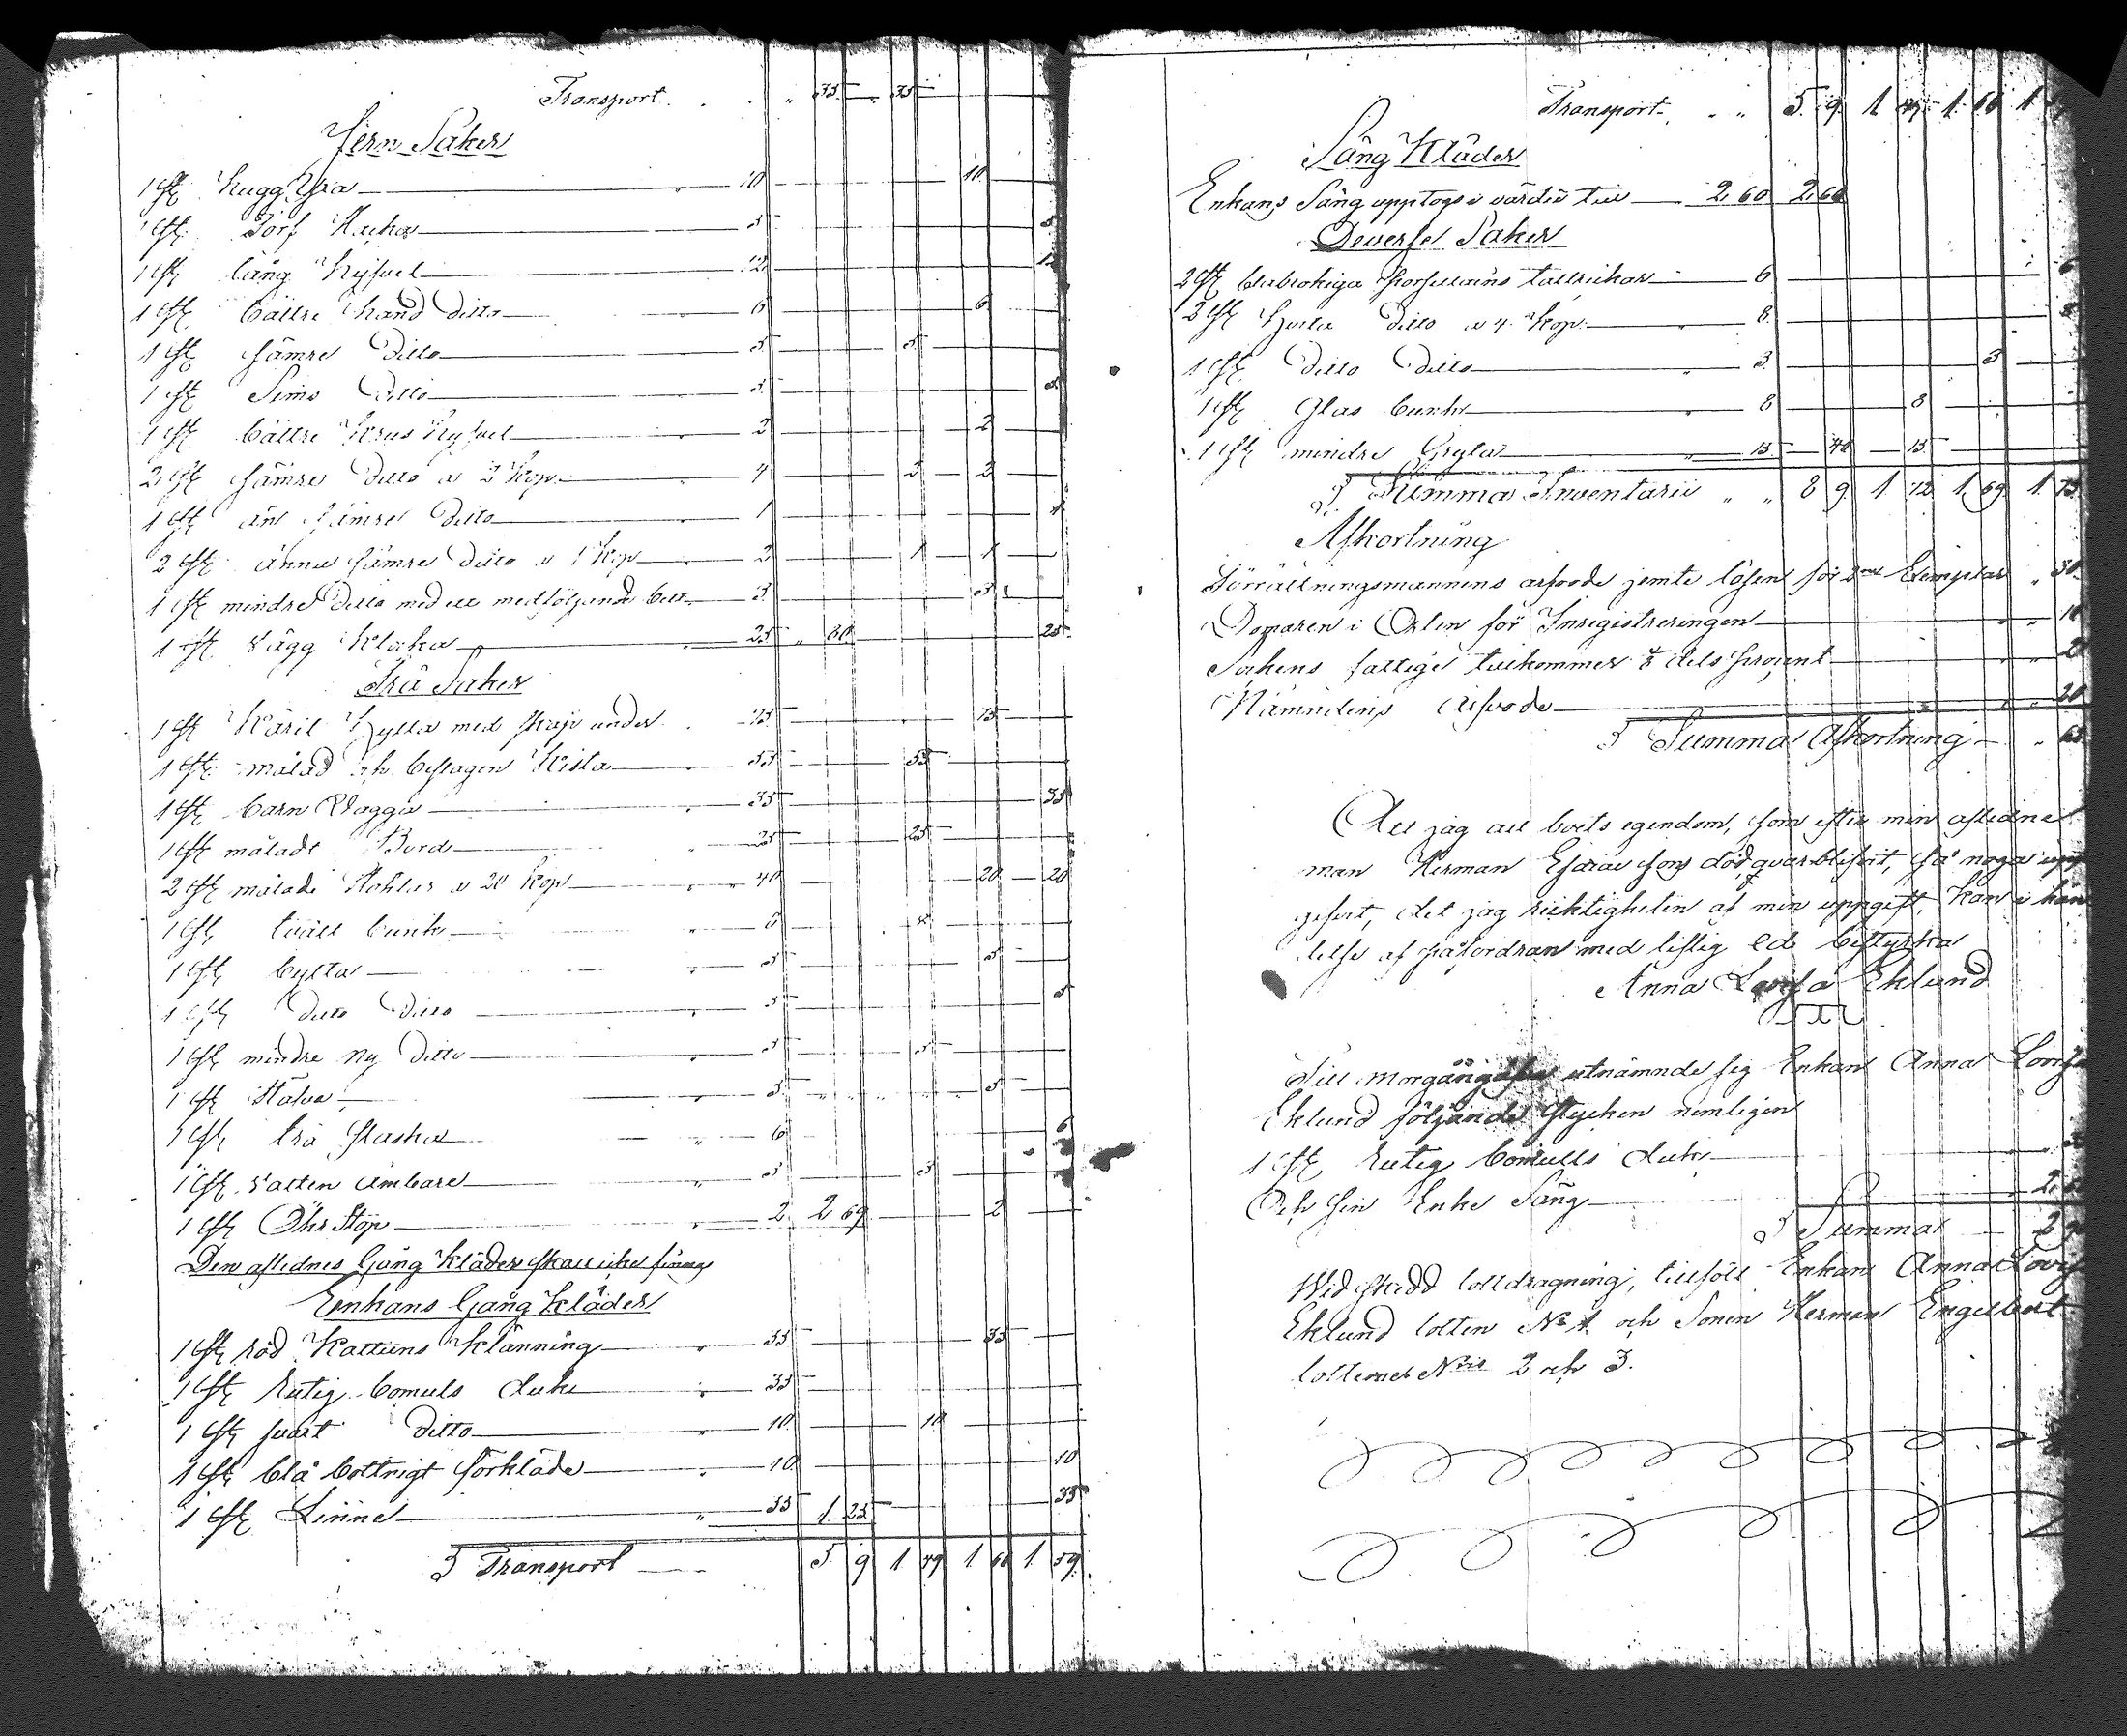 Transport . . „ 35 . 35
Jern Saker
1 st Hugg Yxa 10 10
1 st Törf Hacka 5 5
1 st lång Hyfvel 12 12
1 st bättre Hand Ditto 6 6
1 st sämre Ditto 5 5
1 st Sims Ditto 5 5
1 st bättre Krus Hyfvel 2 2
2 st sämre Ditto a 2 Kop. 4 2 2
1 st än sämre Ditto 1 1
2 st ännu sämre Ditto a 1 Kop 2 1 1
1 st mindre Ditto med ett medföljande bett 5 5
1 st vägg Klocka 25 „ 80 25
Trä Saker
1 st Käril Hylla med skåp under 75 75
1 st målad och beslagen Kista 55 55
1 st barn Vagga 35 35
1 st måladt Bord 25 25
2 st målade Stohlar a 20 Kop 40 20 20
1 st tvätt bunk 8 8
1 st bytta 5 5
1 st Ditto Ditto 5 5
1 st mindre ny Ditto 5 5
1 st Stäfva 5 5
1 st trä flaska 6 6
1 st vatten ämbare 5 5
1 st Öhr Stop 2 2 69 2
Den aflednes Gång Kläder skall icke finnas
Enkans Gång Kläder
1 st röd Kattuns Klänning 35 35
1 st Rutig bomuls duk 35
1 st svart Ditto 10 10
1 st blå bottnigt förkläde 10 10
1 st Linne 35 1 25 35
Transport 5 9 1 49 1 66 1 59
Transport . „ 5 9 1 49 1 66 1
Säng Kläder
Enkans Säng upptogs i värde till 2,60 2,60
Deverse Saker
2 st blabrokiga Porsellains tallrickar 6
2 st hvita Ditto a 4 Kop. 8
1 st Ditto Ditto 3 3
1 st Glas bunk 8 8
1 st mindre Gryta 15 40 15
Summa Inventarii „ „ 8 9 1 72 1 69 1 73
Afkortning
Förrättningsmannens arfvode jemte lösen för 2ne Exemplar „ 30
Domaren i Orten för Inregistreringen 10
Sockens fattige tillkommer 1/8 dels procent
Nämndens Arfvode 20
Summa Afkortning „ 65
Att jag all boets egendom, som efter min aflidne
man Herman Esaias sons död qvarblifvit, så noga upp
gifvit, det jag riktigheten af min uppgift, kan i hän
delse af påfordran med liflig Ed bestyrka
Anna Lovisa Eklund
Till morgångåfva utnämnde sig Enkan Anna Lovisa
Eklund följande stycken nemligen
1 st Rutig bomulls duk
Och sin Enke Säng 2,
Summa 2
Wid skedd lottdragning, tillföll Enkan Anna Lovisa
Eklund lotten No 1 och Sonen Herman Engelbert
lotterna Nris 2 och 3.